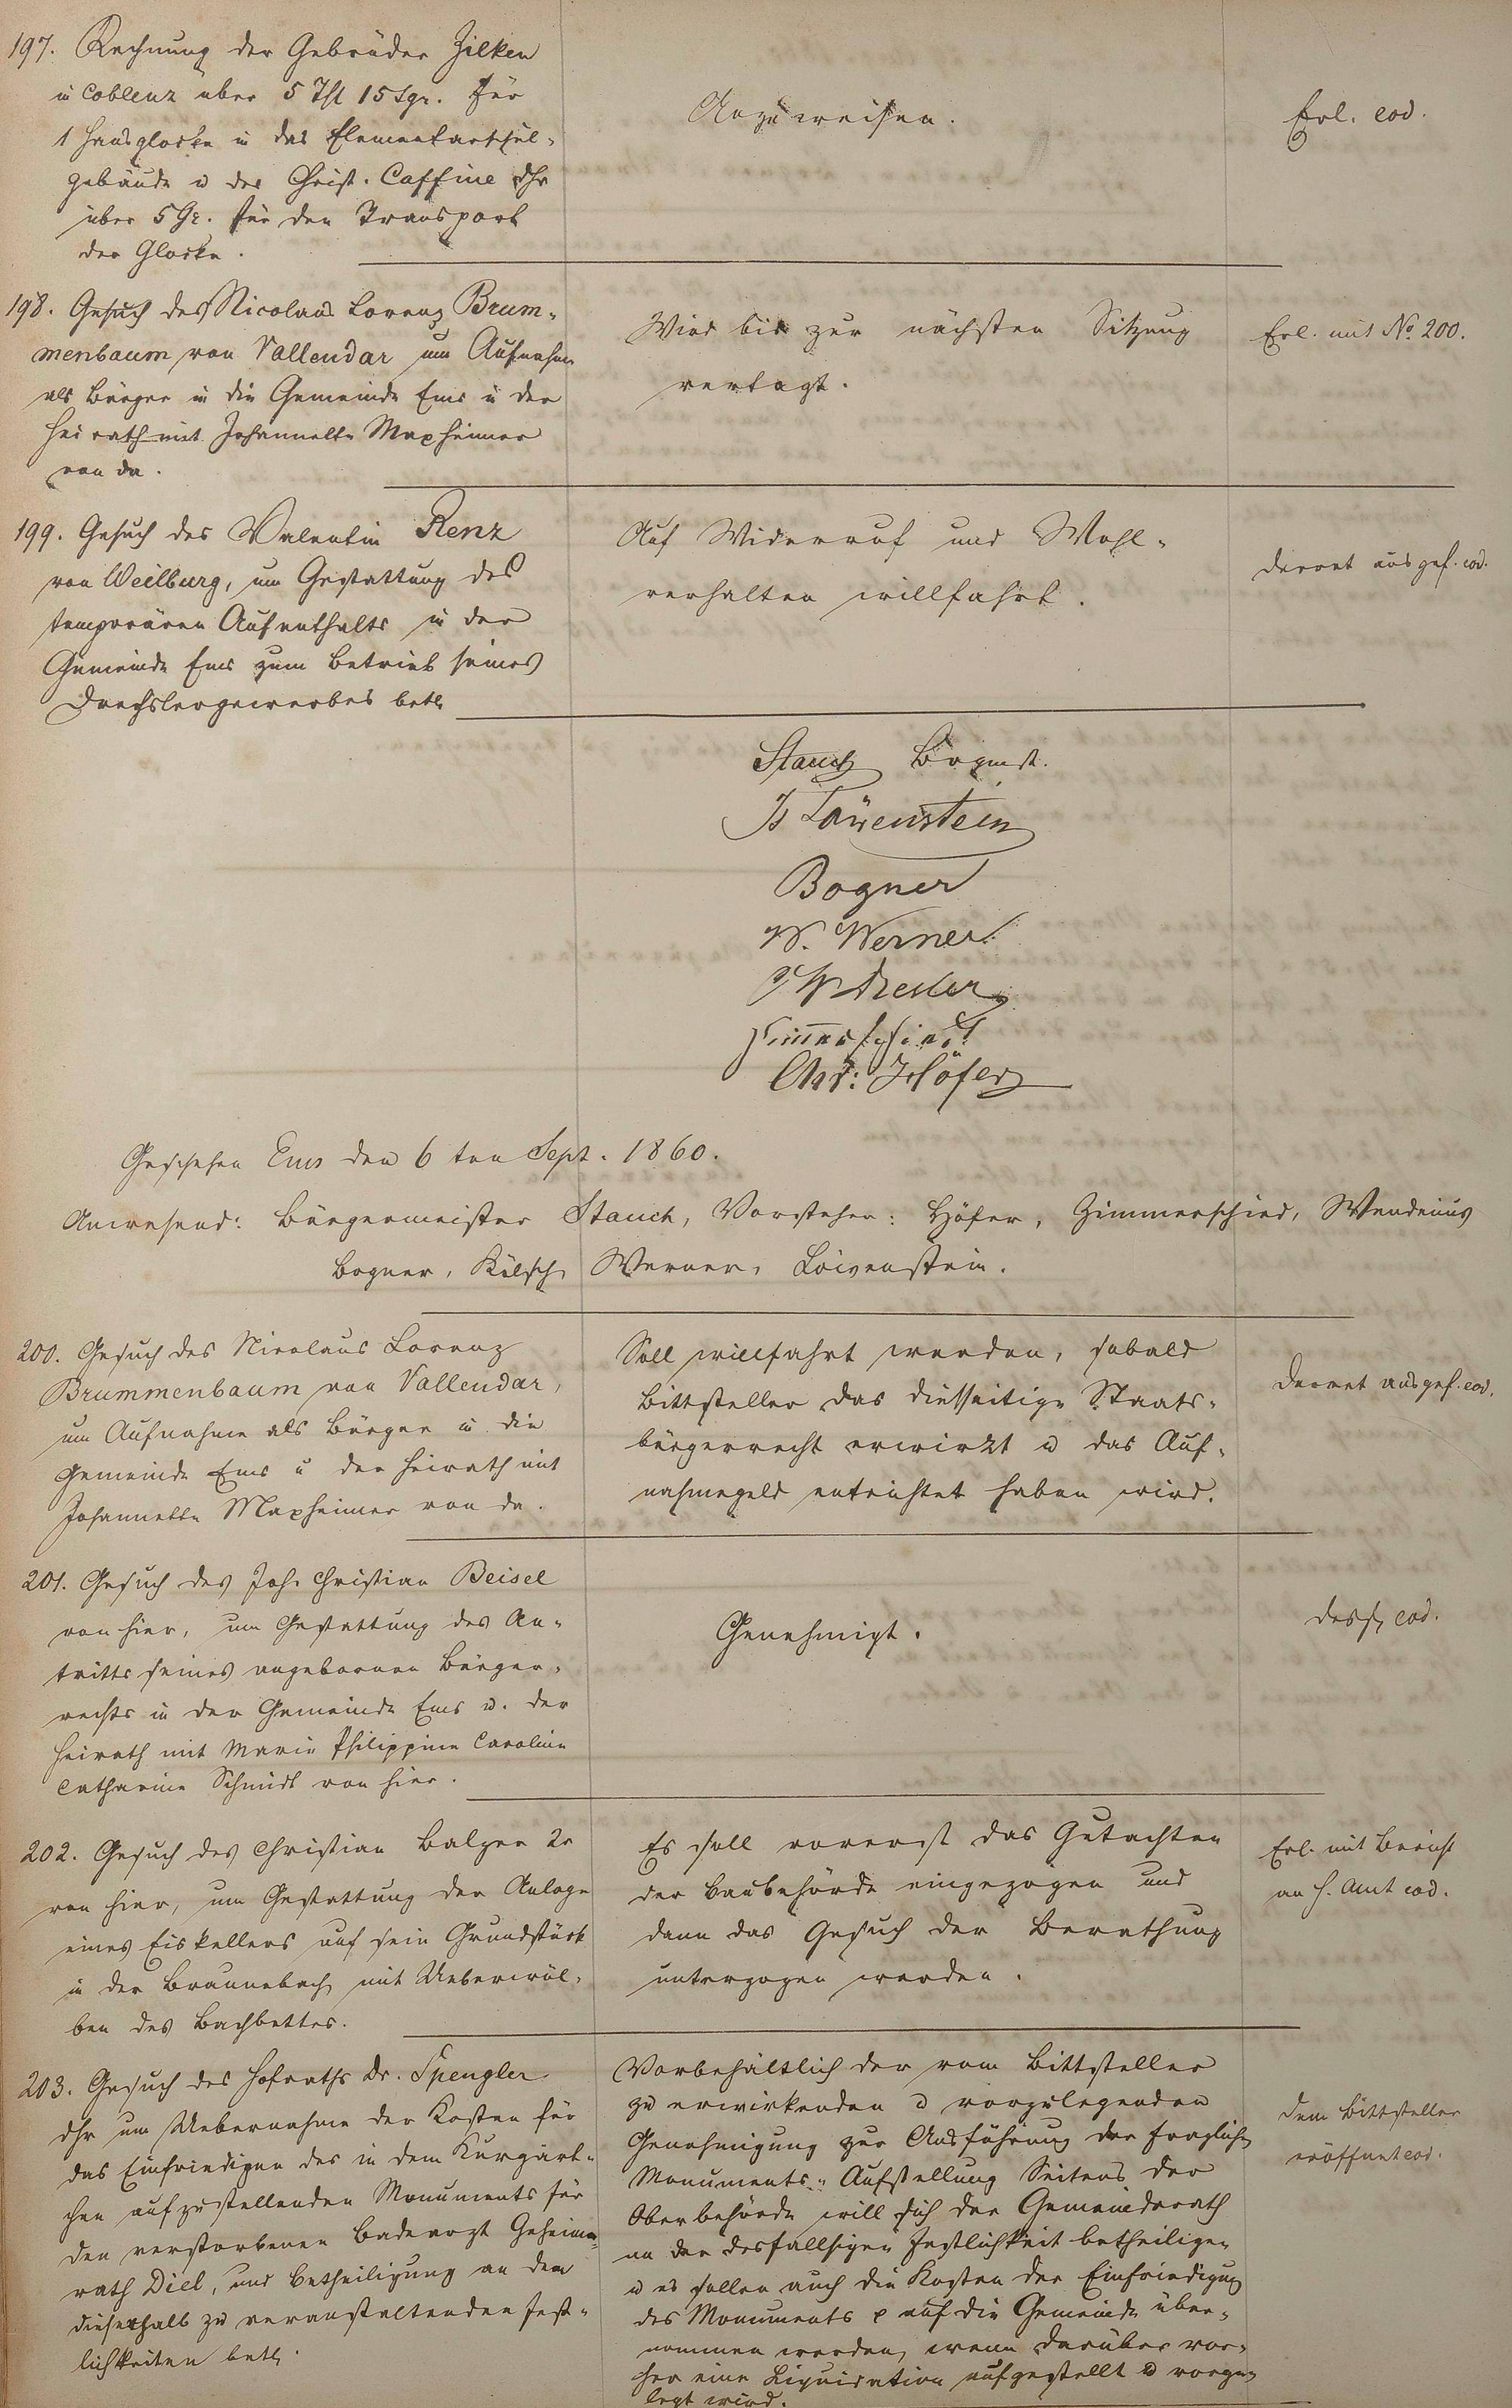 197. Rechnung der Gebrüder Zilken
in Coblenz über 5 Thl 15 Sgr. für
1 Hausglocke in das Elementarschul-
gebäude u des Christ. Caffine dhr
über 5 Gr. für den Transport
der Glocke.
Anzuweisen.
Erl. eod.
198. Gesuch des Nicolaus Lorenz Brum-
menbaum von Vallendar um Aufnahme
als Bürger in die Gemeinde Ems u der
Heirath mit Johannette Maxheimer
von da.
Wird bis zur nächsten Sitzung
vertagt.
Erl. mit No. 200.
199. Gesuch des Valentin Renz
von Weilburg, um Gestattung des
temporären Aufenthalts in der
Gemeinde Ems zum Betrieb seines
Drechslergewerbes betr.
Auf Widerruf und Wohl-
verhalten willfahrt.
Decret ausgef. eod.
Stauch Bürgmst.
Löwenstein
Bogner
W. Werner
Zimmerschied
Chr: Höfer
Geschehen Ems den 6 ten Sept. 1860.
Anwesend: Bürgermeister Stauch, Vorsteher: Höfer, Zimmerschied, Wendenius
Bogner, Külsch, Werner, Löwenstein.
200. Gesuch des Nicolaus Lorenz
Brummenbaum von Vallendar,
um Aufnahme als Bürger in die
Gemeinde Ems u der Heirath mit
Johannette Maxheimer von da.
Soll willfahrt werden, sobald
Bittsteller das diesseitige Staats-
bürgerrecht erwirkt u das Auf-
nahmegeld entrichtet haben wird.
Decret ausgef. eod.
201. Gesuch des Joh. Christian Beisel
von hier, um Gestattung des An-
tritts seines angebornen Bürger-
rechts in der Gemeinde Ems u. der
Heirath mit Marie Philippine Caroline
Catharine Schmidt von hier.
Genehmigt.
desgl. eod.
202. Gesuch des Christian Balzer 2r
von hier, um Gestattung der Anlage
eines Eiskellers auf sein Grundstück
in der Braunebach, mit Ueberwöl-
ben des Bachbettes.
Es soll vorerst das Gutachten
der Baubehörde eingezogen und
dann das Gesuch der Berathung
unterzogen werden.
Erl. mit Bericht
an H. Amt eod.
203. Gesuch des Hofraths Dr. Spengler
dhr um Uebernahme der Kosten für
das Einfriedigen des in dem Kurgärt-
chen aufzustellenden Monuments für
den verstorbenen Badearzt Geheime-
rath Diel, und Betheiligung an den
dieserhalb zu veranstaltenden Fest-
lichkeiten betr.
Vorbehältlich der vom Bittsteller
zu erwirkenden u vorzulegenden
Genehmigung zur Ausführung der fraglichen
Monuments-Aufstellung Seitens der
Oberbehörde will sich der Gemeinderath
an der desfallsigen Festlichkeit betheiligen
u es sollen auch die Kosten der Einfriedigung
des Monuments p auf die Gemeinde über-
nommen werden, wenn darüber vor-
her eine Liquidation aufgestellt u vorge-
legt wird.
Dem Bittsteller
eröffnet eod.